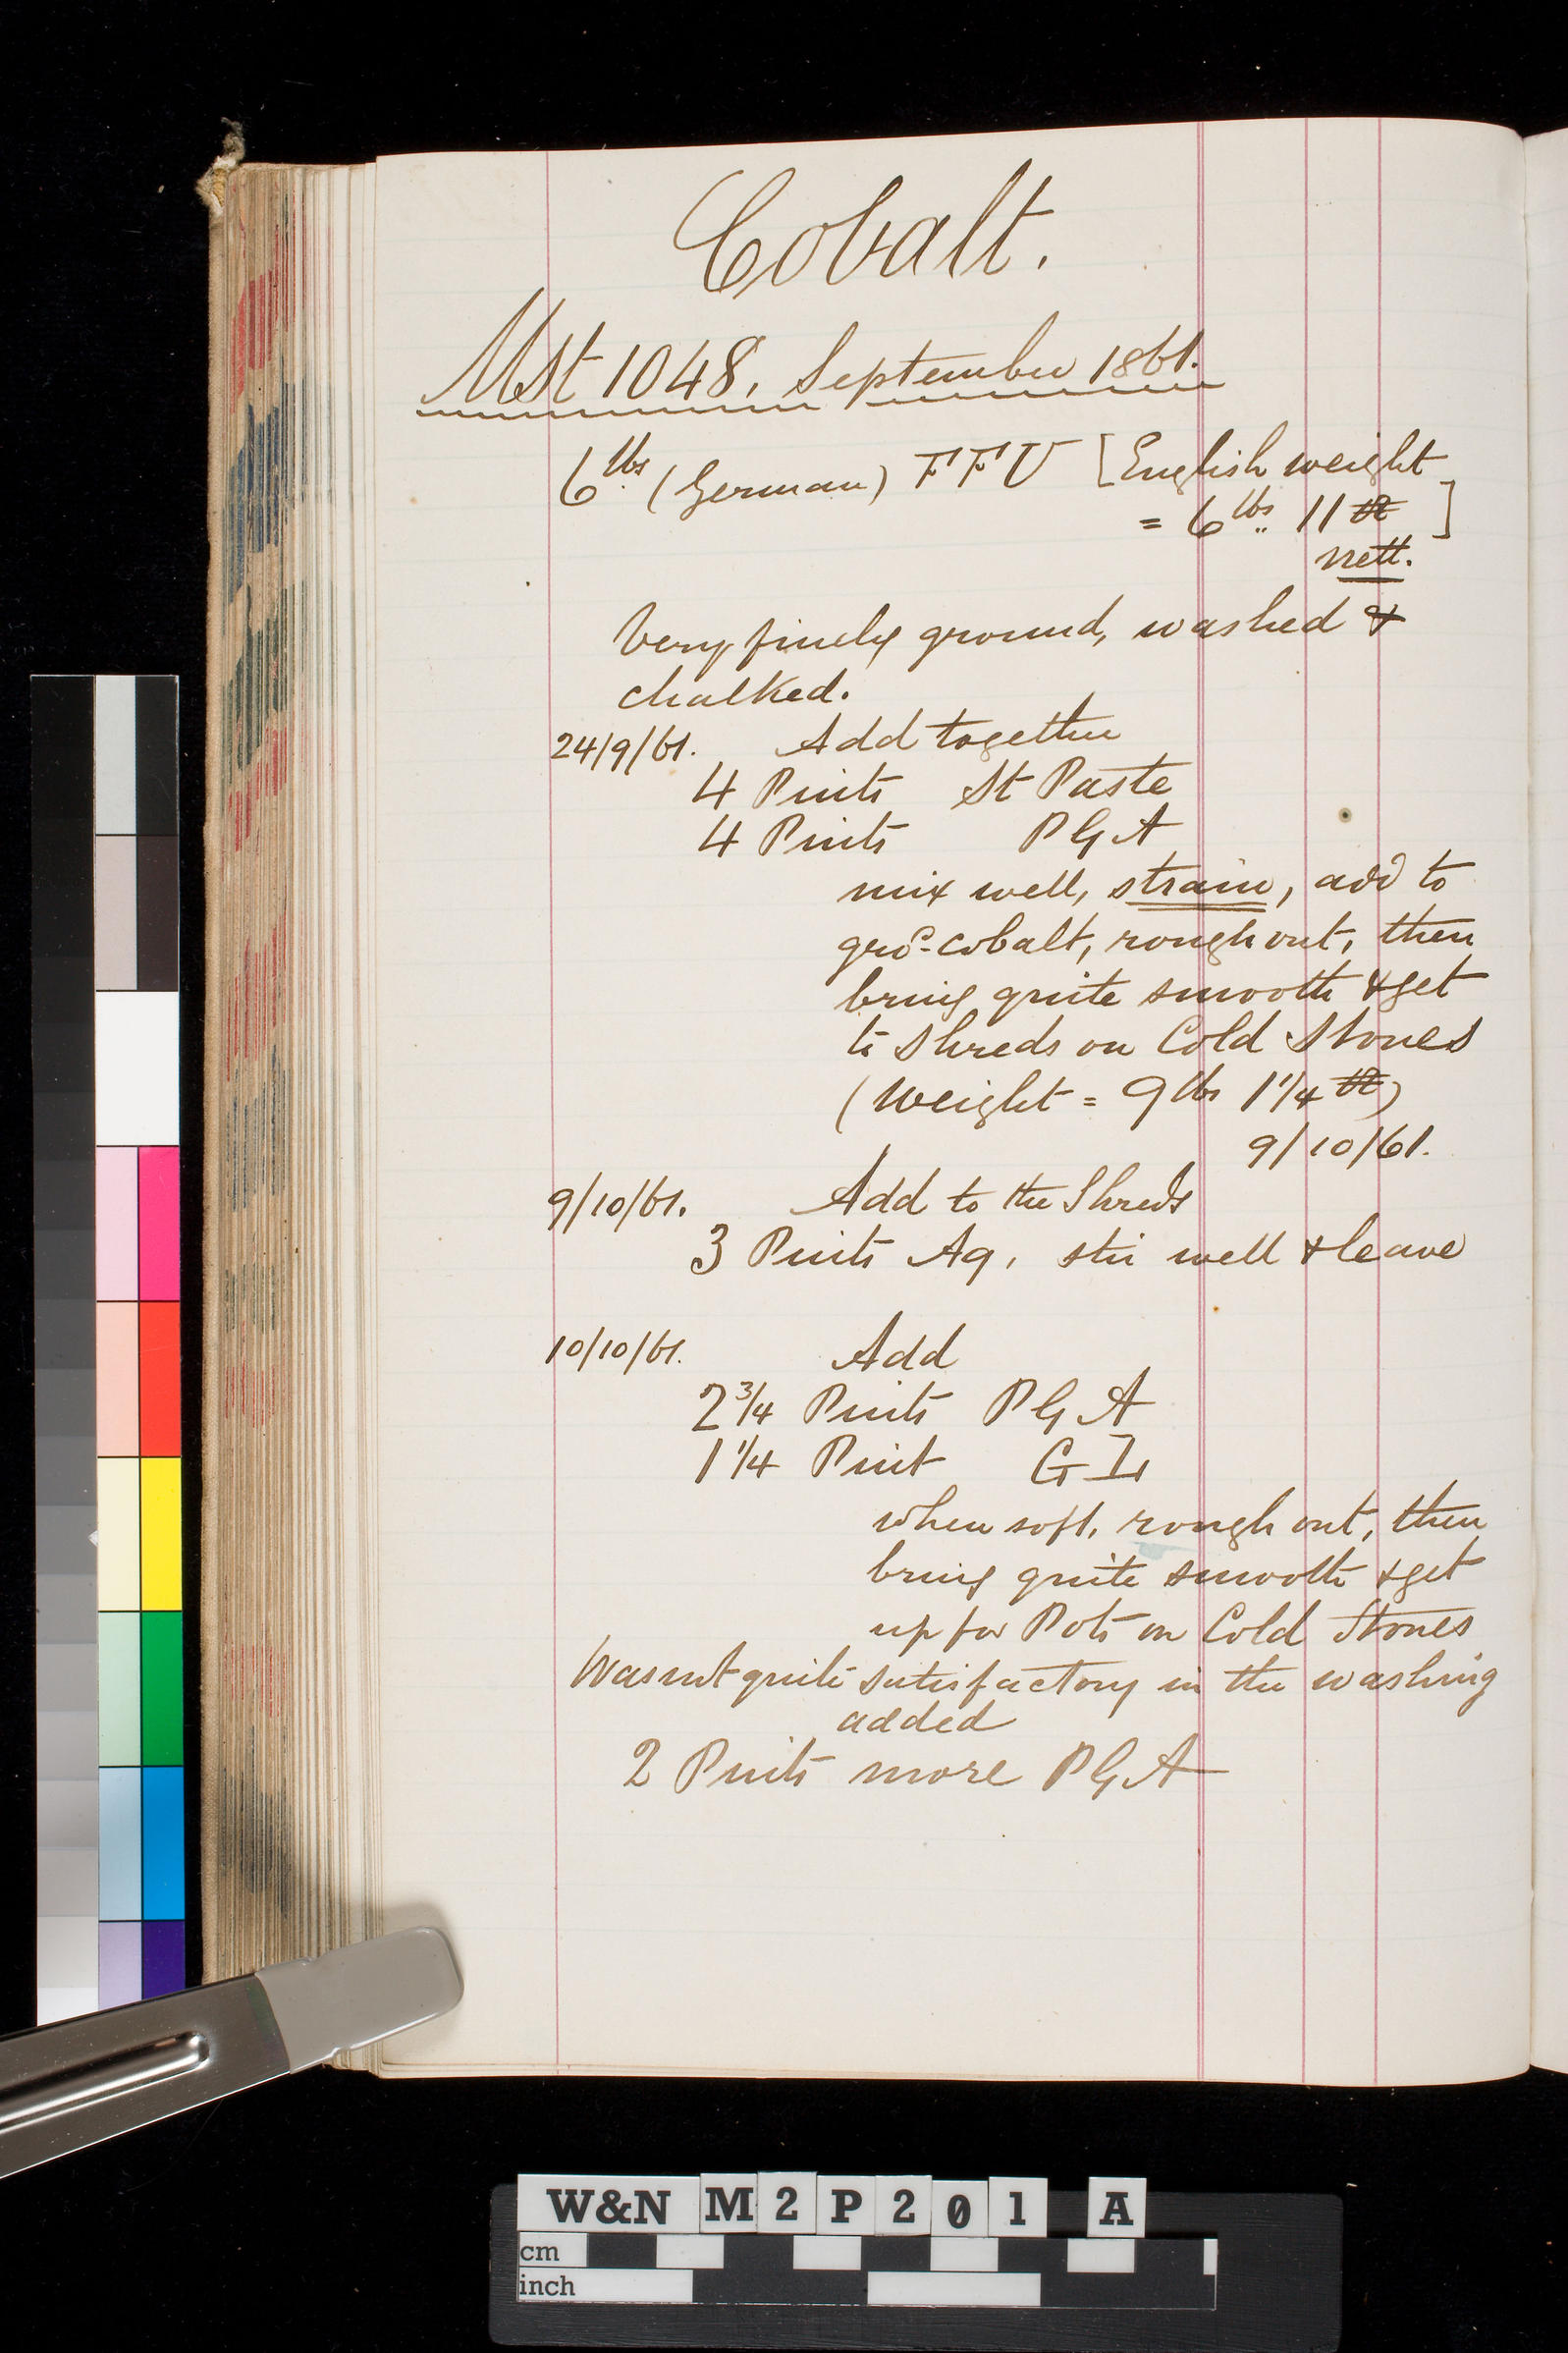 Cobalt.
Mst 1048, September 1861.
6 lbs (German) FFU [English weight
= 6 lbs 11 oz ]
nett.
Very finely ground, washed &
chalked.
24/9/61. Add together
4 Pints St Paste
4 Pints P G A
mix well, strain, add to
grd. cobalt, rough out, then
bring quite smooth & get
to Shreds on Cold Stones
(Weight = 9 lbs 1 1/4 oz)
9/10/61.
9/10/61. Add to the Shreds
3 Pints Aq, stir well & leave
10/10/61. Add
2 3/4 Pints P G A
1 1/4 Pint G L
when soft, rough out, then
bring quite smooth & get
up for Pots on Cold Stones
Was not quite satisfactory in the washing
added
2 Pints more P G A
W&N M2P201 A
cm
inch